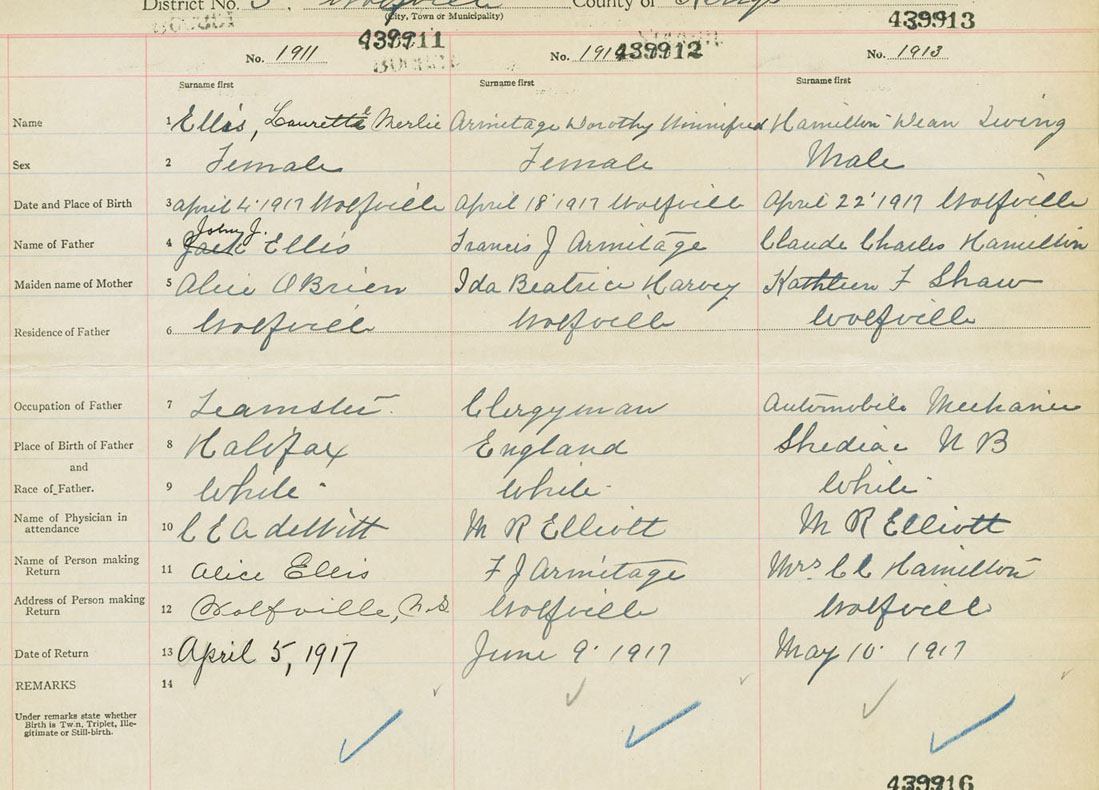 District No. 3. Wolfville County of Kings
(City, Town or Municipality)
439913
439911
439912
No. 1911 No. 191 No. 1913
Surname first Surname first Surname first
Name 1 Ellis, Laurette Merlie Armitage Dorothy Winnifred Hamilton Dean Irving
Sex 2 Female Female Male
Date and Place of Birth 3 April 4' 1917 Wolfville April 18' 1917 Wolfville April 22' 1917 Wolfville
John J.
Name of Father 4 Jack Ellis Francis J Armitage Claude Charles Hamilton
Maiden name of Mother 5 Alice O'Brien Ida Beatrice Harvey Kathleen F Shaw
Residence of Father 6 Wolfville Wolfville Wolfville
Occupation of Father 7 Teamster. Clergyman Automobile Mechanic
Place of Birth of Father 8 Halifax England Shediac N B
and
Race of Father. 9 White White White
Name of Physician in
attendance 10 C E A deWitt M R Elliott M R Elliott
Name of Person making
Return 11 Alice Ellis F J Armitage Mrs. C C Hamilton
Address of Person making
Return 12 Wolfville, N.S Wolfville Wolfville
Date of Return 13 April 5, 1917 June 9' 1917 May 10' 1917
REMARKS 14
Under remarks state whether
Birth is Twin, Triplet, Ille-
gitimate or Still-birth.
439916